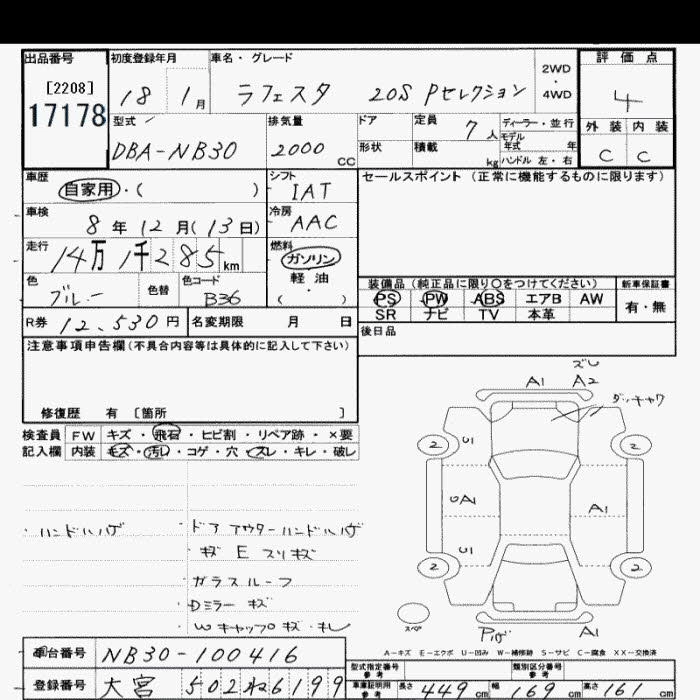 出品番号 初度登録年月 車名・グレード 2WD・4WD 評価点
[2208]
17178
18 1月 ラフェスタ 20S Pセレクション 4
型式 排気量 ドア 定員 7人 ディーラー・並行 外装 内装
モデル年式 年
DBA-NB30 2000CC 形状 積載 kg ハンドル 左・右 C C
車歴 シフト セールスポイント (正常に機能するものに限ります)
自家用・( ) IAT
車検 冷房
8年12月(13日) AAC
走行 燃料
14万1千285km ガソリン
色 色替 色コード 軽油
ブルー B36 ( )
装備品(純正品に限り○をつけてください) 新車保証書
PS PW ABS エアB AW 有・無
SR ナビ TV 本革
R券 12,530円 名変期限 月 日
後日品
注意事項申告欄(不具合内容等は具体的に記入して下さい)
修復歴 有 [箇所 ]
検査員 FW キズ・飛石・ヒビ割・リペア跡・×要
記入欄 内装 キズ・汚れ・コゲ・穴・スレ・キレ・破レ
ズレ
A1 A2
ダッキャワ
2 U1 2
UA1 A1
U1
2 2
スペア
A1
ハンドルハゲ ドアアウターハンドルハゲ
キズ E スリキズ
ガラスルーフ
Dミラー キズ
Wキャップキズ・キレ
A-キズ E-エクボ U-凹み W-補修跡 S-サビ C-腐食 XX-交換済
車台番号 NB30-100416
型式指定番号 類別区分番号
登録番号 大宮 502ね6199
車庫証明用参考 長さ 449cm 幅 169cm 高さ参考 161cm